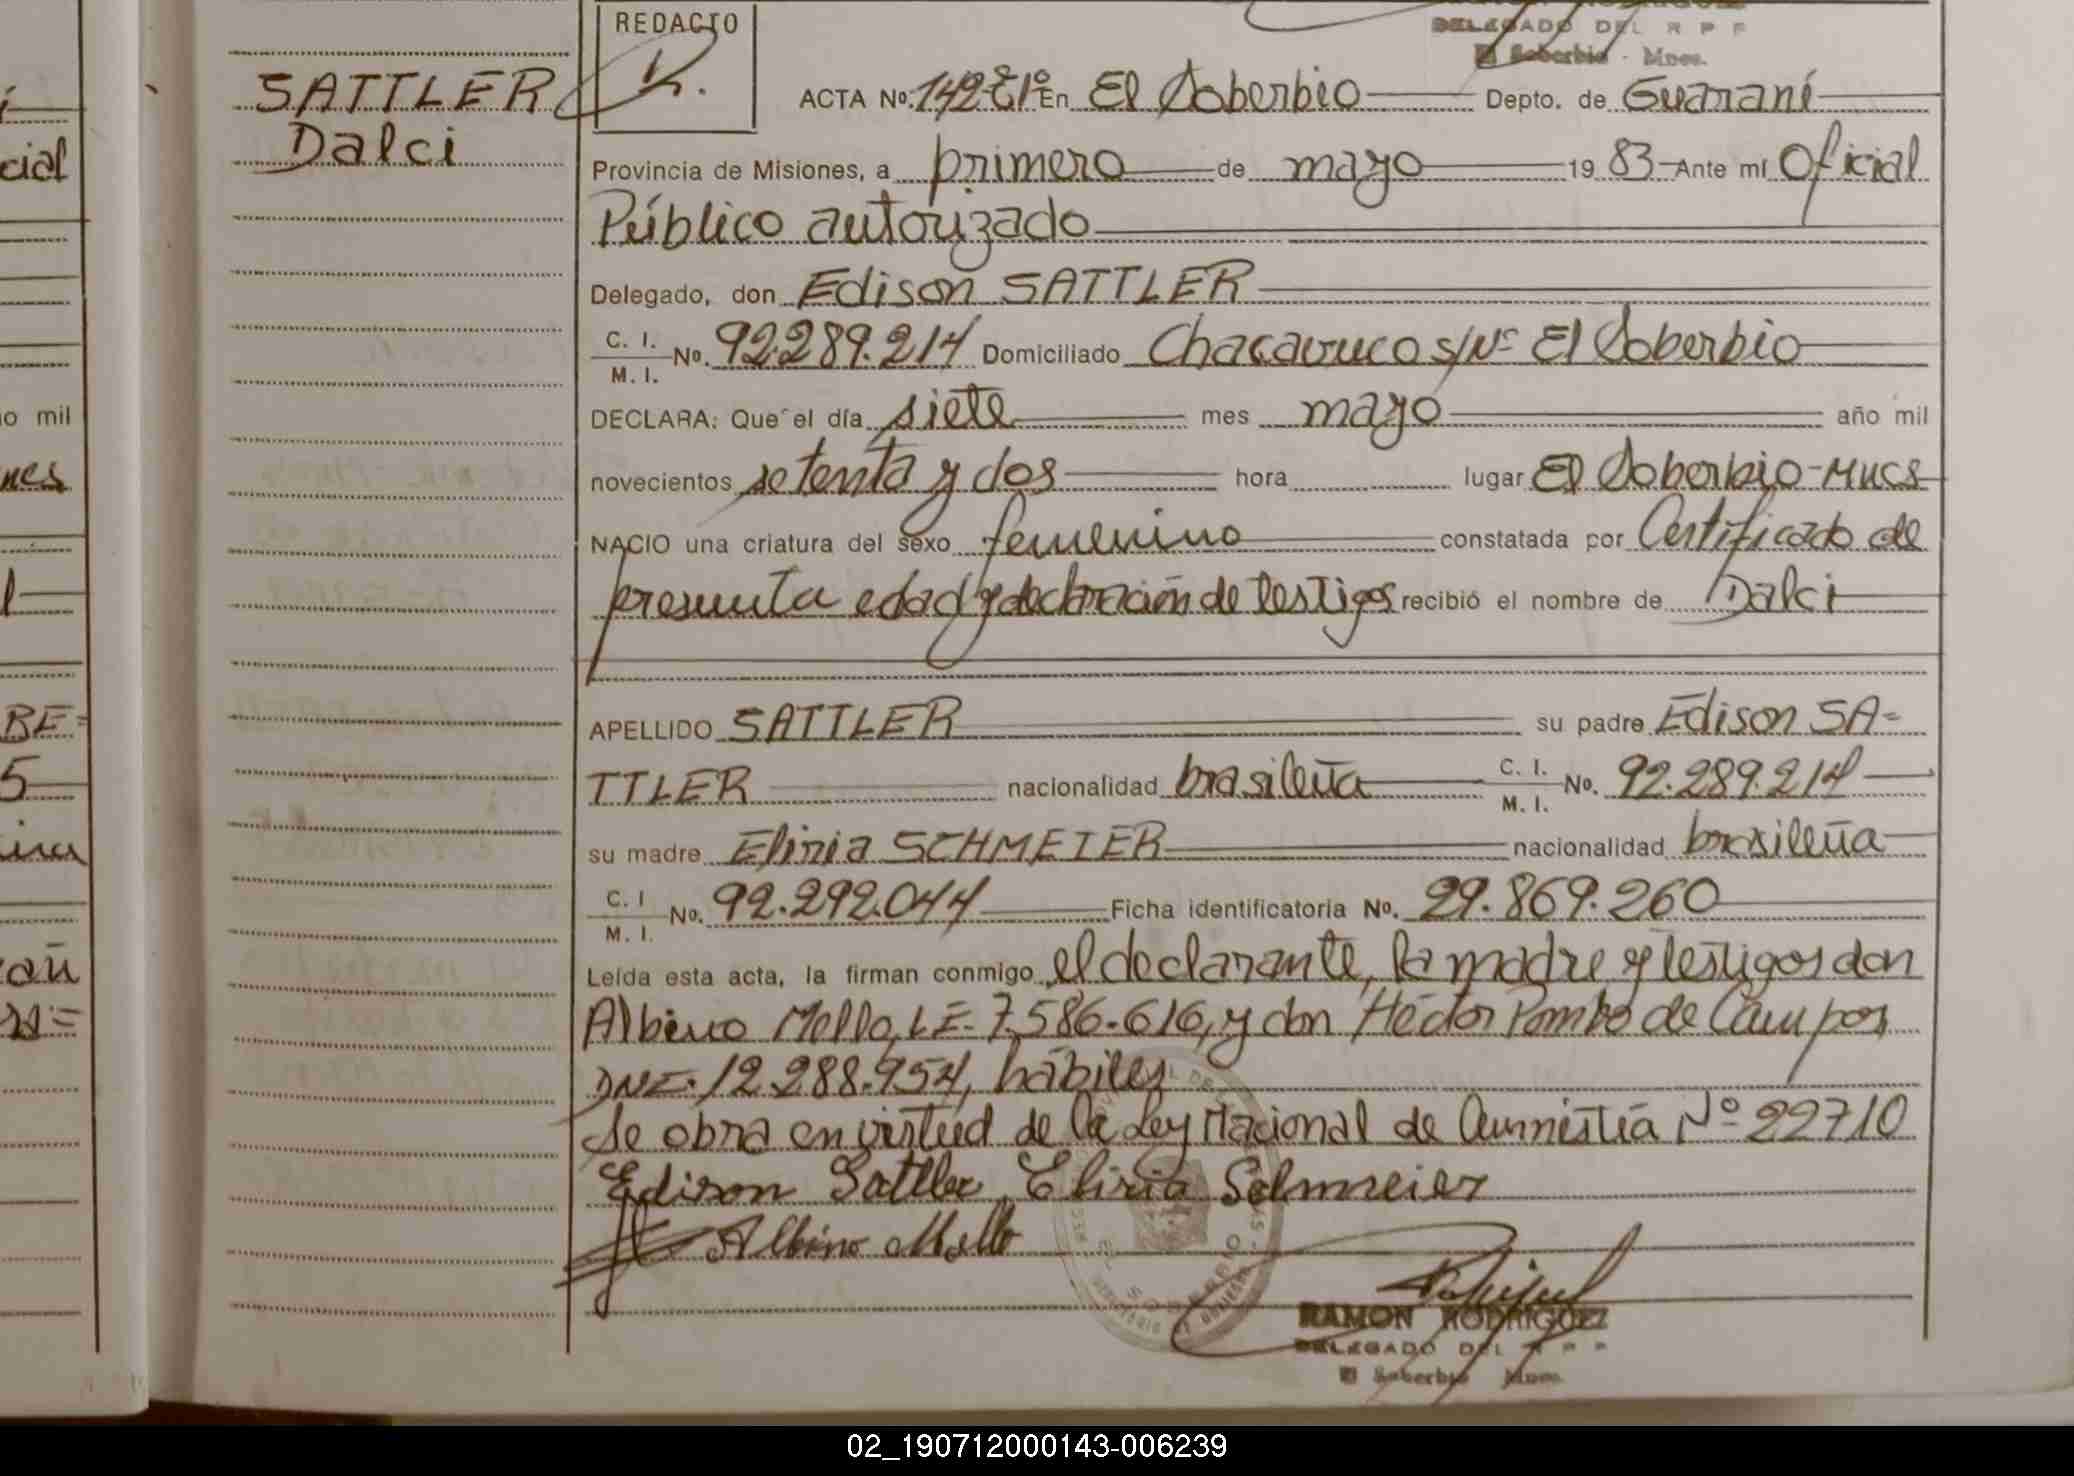 RAMON RODRIGUEZ
DELEGADO DEL R P P
El Soberbio - Mnes.
REDACTO
SATTLER
Dalci
ACTA No. 142-T1º En El Soberbio Depto. de Guaraní
Provincia de Misiones, a primero de mayo 19 83 Ante mí Oficial
Público autorizado
Delegado, don Edison SATTLER
C. I.
M. I. No. 92.289.214 Domiciliado Chacabuco s/Nº El Soberbio
DECLARA: Que el día siete mes mayo año mil
novecientos setenta y dos hora lugar El Soberbio-Mnes
NACIO una criatura del sexo femenino constatada por Certificado de
presunta edad y declaración de testigos recibió el nombre de Dalci
APELLIDO SATTLER su padre Edison SA=
TTLER nacionalidad brasileña C. I.
M. I. No. 92.289.214
su madre Eliria SCHMEIER nacionalidad brasileña
C. I
M. I. No. 92.292.044 Ficha identificatoria No. 29.869.260
Leída esta acta, la firman conmigo el declarante, la madre y testigos don
Albino Mello, LE. 7.586.616, y don Héctor Pombo de Campos
DNI. 12.288.954, hábiles
Se obra en virtud de la Ley Nacional de Amnistía Nº 22710
Edison Sattler Eliria Schmeier
Albino Mello
RAMON RODRIGUEZ
DELEGADO DEL R P P
El Soberbio Mnes.
02_190712000143-006239